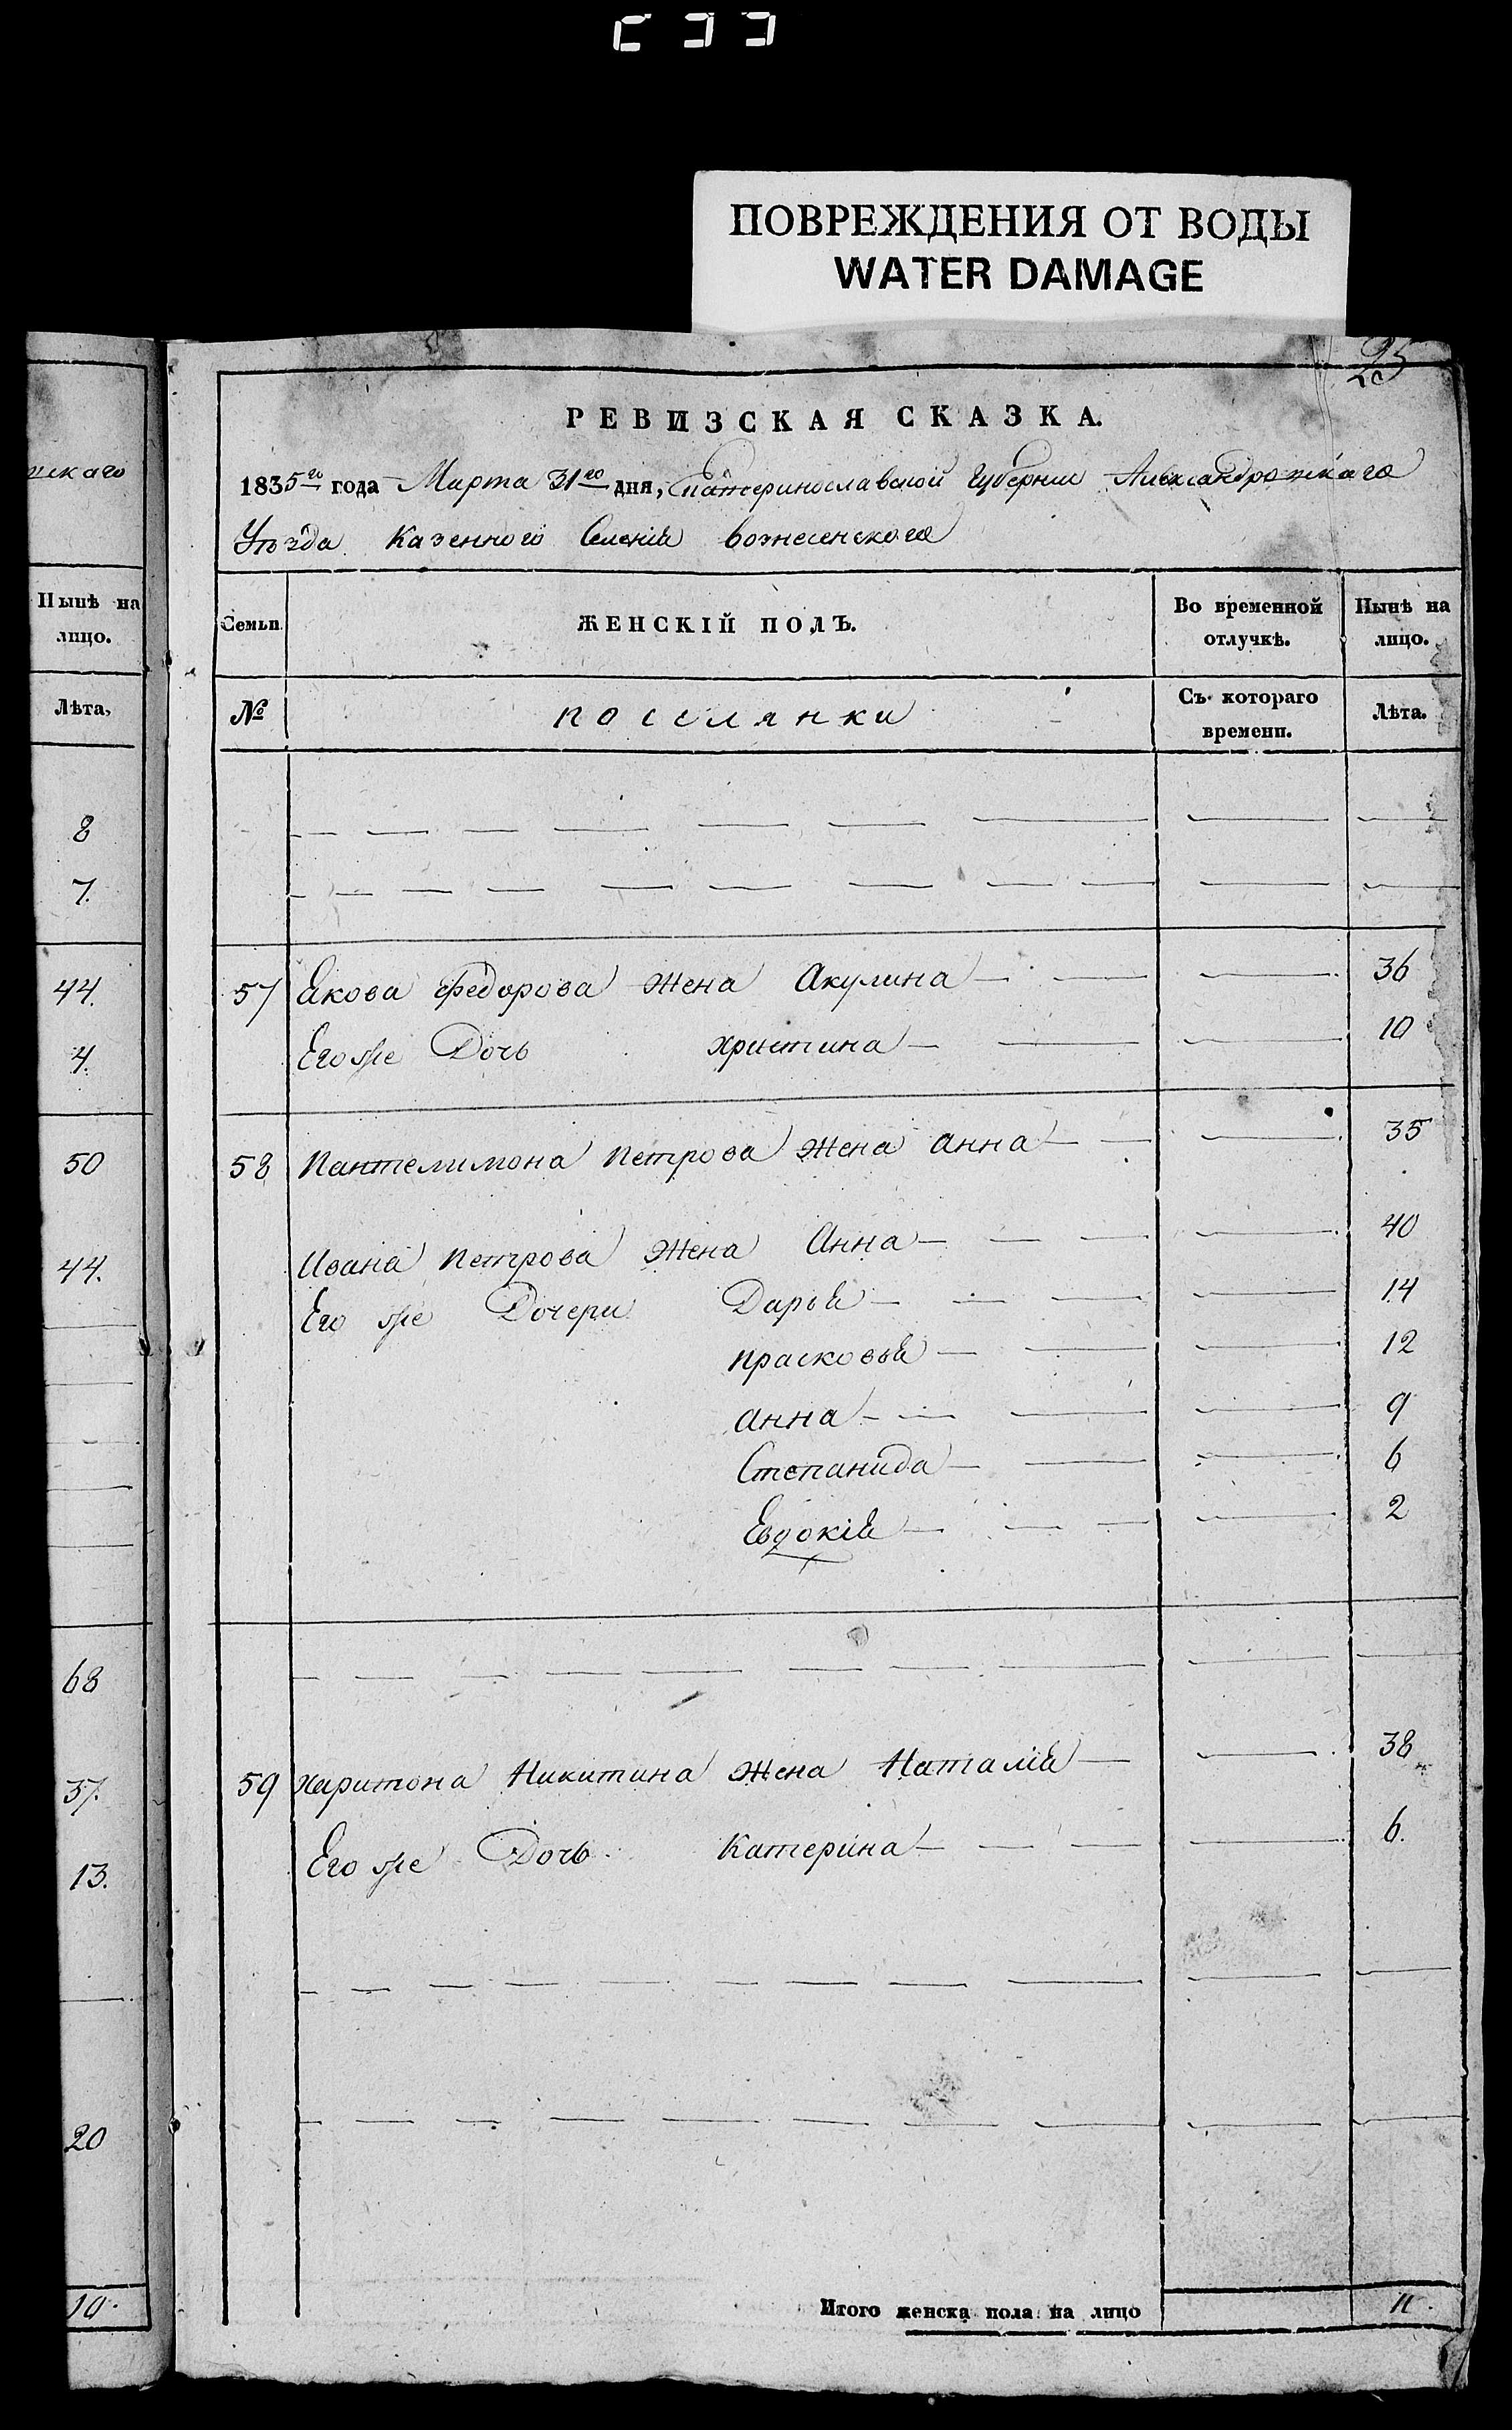 ПОВРЕЖДЕНИЯ ОТ ВОДЫ
WATER DAMAGE
РЕВИЗСКАЯ СКАЗКА.
1835го года Марта 31го дня, Екатеринославской Губернии Александровскаго
Уѣзда Казенного Селенія Вознесенского
Семьи
ЖЕНСКІЙ ПОЛЪ.
Во временной отлучкѣ.
Нынѣ на лицо.
№
поселянки
Съ котораго времени.
Лѣта.
57 Якова Федорова Жена Акулина 36
Его же Дочь Христина 10
58 Пантелимона Петрова Жена Анна 35
Ивана Петрова Жена Анна 40
Его же Дочери Дарья 14
Прасковья 12
Анна 9
Степанида 6
Евдокія 2
59 Харитона Никитина Жена Наталія 38
Его же Дочь Катерина 6.
Итого женска пола на лицо 11.
скаго
Нынѣ на лицо.
Лѣта,
8
7.
44.
4.
50
44.
68
37.
13.
20
10.